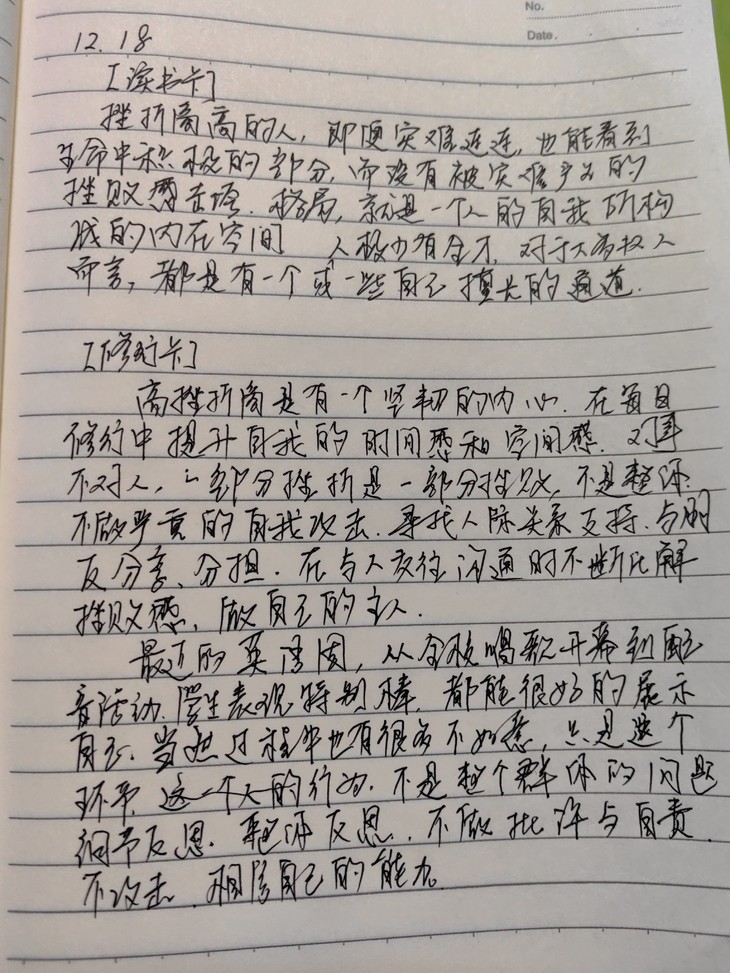 No.
Date.
12.18
【读书卡】
挫折商高的人，即便灾难连连，也能看到
生命中积极的部分，而没有被灾难产生的
挫败感击垮．格局，就是一个人的自我所构
成的内在空间 人极少有全才，对于大多数人
而言，都是有一个或一些自己擅长的通道．
【修行卡】
高挫折商是有一个坚韧的内心．在每日
修行中提升自我的时间感和空间感．对事
不对人，一部分挫折是一部分挫败，不是整体．
不做严重的自我攻击．寻找人际关系支持．与朋
友分享、分担．在与人交往沟通时不断化解
挫败感，做自己的主人．
最近的英语周，从全校唱歌开幕到配
音活动．学生表现特别棒，都能很好的展示
自己．当然过程中也有很多不如意，只是这个
环节，这一个人的行为．不是整个群体的问题
细节反思．整体反思．不做批评与自责．
不攻击．相信自己的能力．